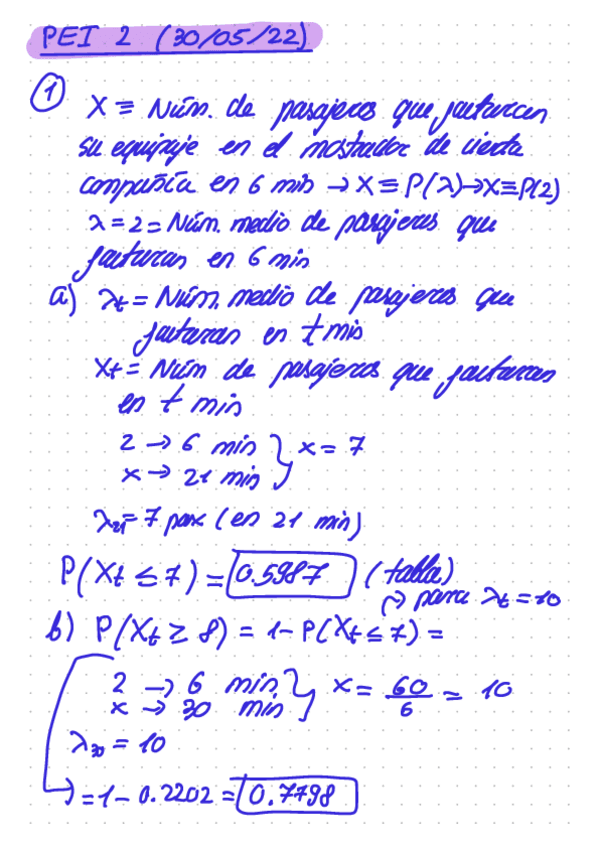 PEI 2 (30/05/22)
1 X ≡ Núm. de pasajeros que facturan
su equipaje en el mostrador de cierta
compañía en 6 min → X ≡ P(λ) → X ≡ P(2)
λ = 2 = Núm. medio de pasajeros que
facturan en 6 min
a) λt = Núm. medio de pasajeros que
facturan en t min
Xt = Núm de pasajeros que facturan
en t min
2 → 6 min } x = 7
x → 21 min
λ21 = 7 pax (en 21 min)
P(Xt ≤ 7) = 0.5987 (tabla)
→ para λt = 10
b) P(Xt ≥ 8) = 1 - P(Xt ≤ 7) =
2 → 6 min } x = 60/6 = 10
x → 30 min
λ30 = 10
→ = 1 - 0.2202 = 0.7798